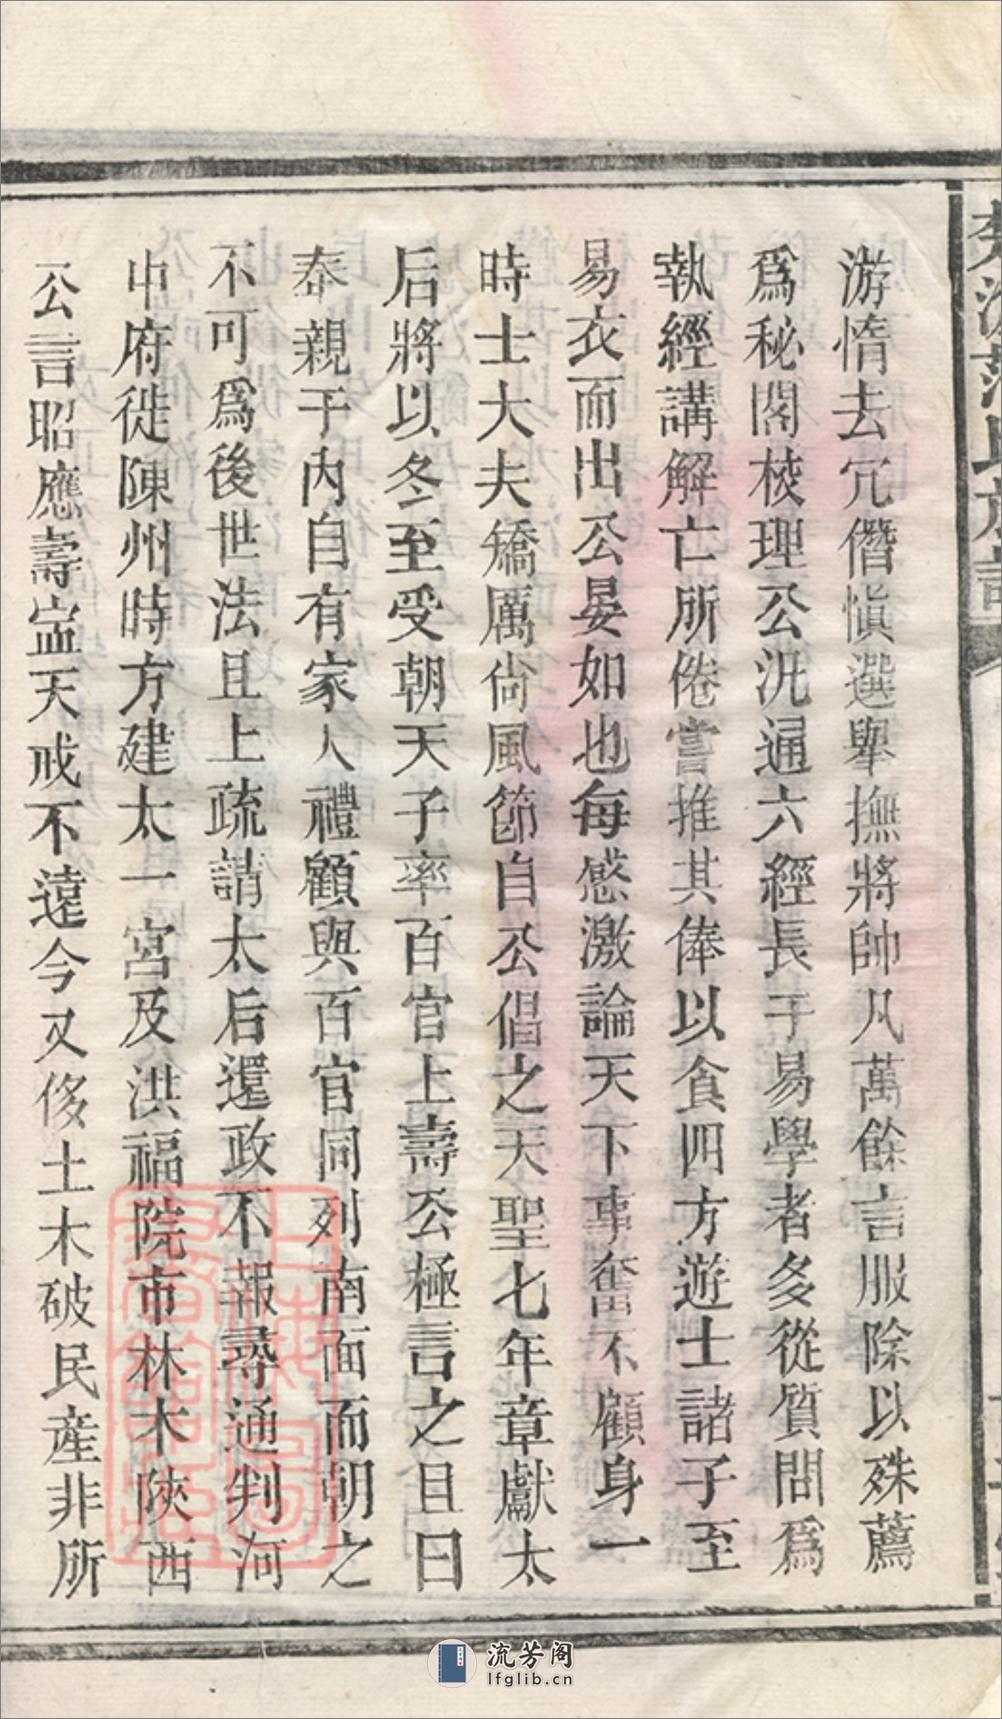 游惰去冗僭慎選舉撫將帥凡萬餘言服除以殊薦
爲秘閣校理公汎通六經長于易學者多從質問爲
執經講解亡所倦嘗推其俸以食四方遊士諸子至
易衣而出公晏如也每感激論天下事奮不顧身一
時士大夫矯厲尙風節自公倡之天聖七年章獻太
后將以冬至受朝天子率百官上壽公極言之且曰
奉親于內自有家人禮顧與百官同列南面而朝之
不可爲後世法且上疏請太后還政不報尋通判河
中府徙陳州時方建太一宮及洪福院市林木陝西
公言昭應壽寍天戒不遠今又侈土木破民產非所
流芳阁
lfglib.cn